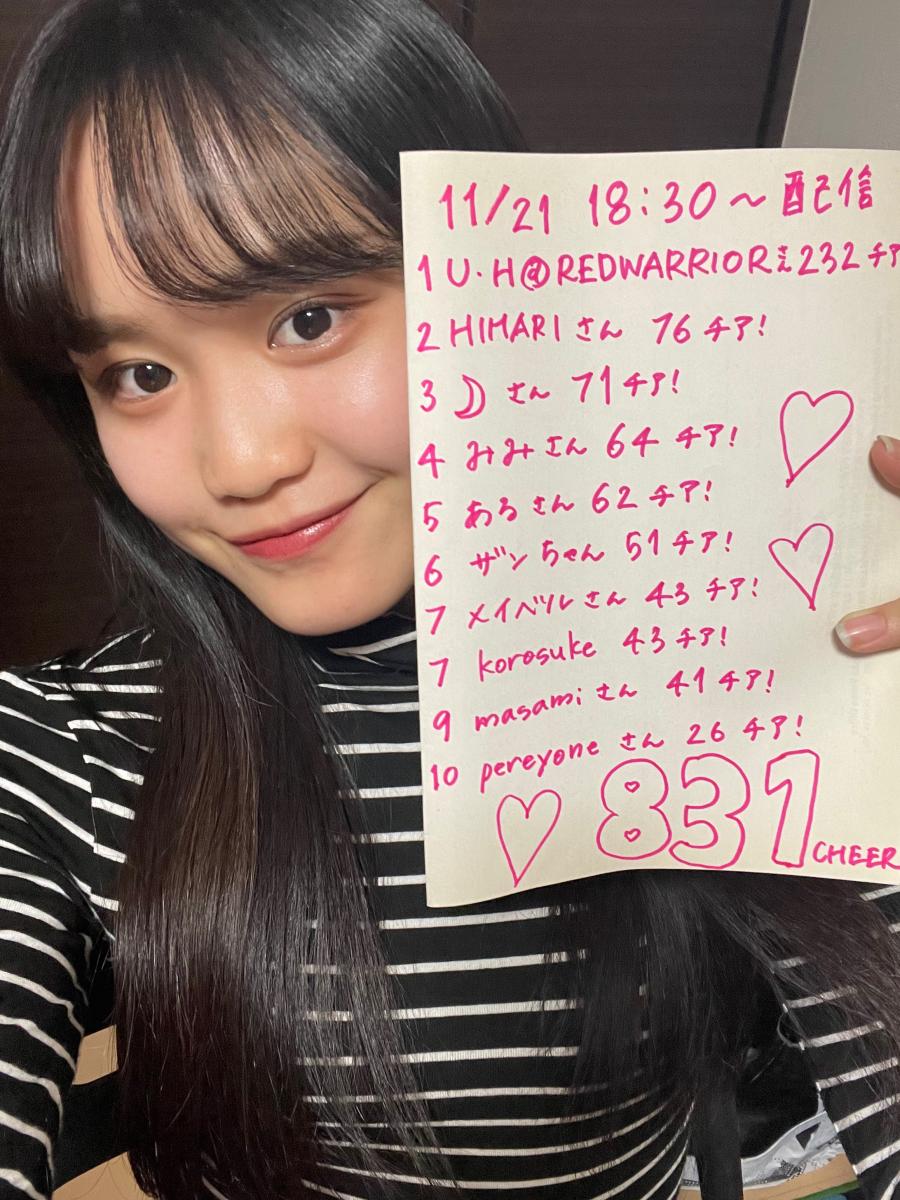 11/21 18:30~配信
1 U·H@REDWARRIORさん232チア
2 HIMARIさん 76チア!
3 ☽ さん 71チア!
4 みみさん 64チア!
5 あろさん 62チア!
6 ザンちゃん 51チア!
7 メイベルさん 43チア!
7 korosuke 43チア!
9 masamiさん 41チア!
10 pereyoneさん 26チア!
831 CHEER